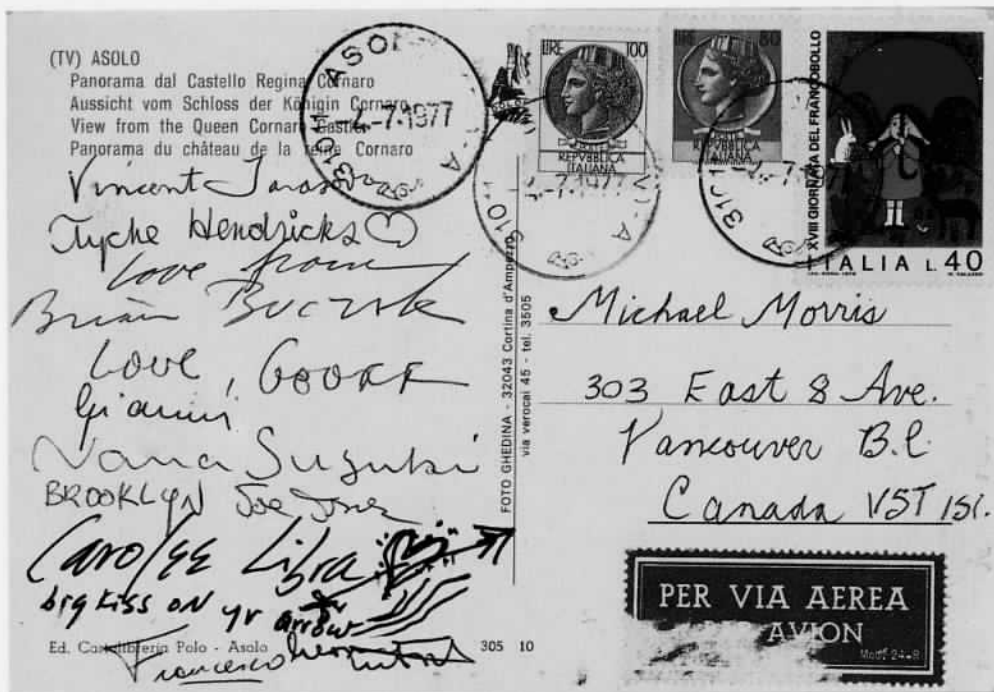 (TV) ASOLO
Panorama dal Castello Regina Cornaro
Aussicht vom Schloss der Königin Cornaro
View from the Queen Cornaro
Panorama du château de la reine Cornaro
Vincent
Tyche Hendricks
love from
Brian
Love, GOOFF
Gianni
Nana Suzuki
BROOKLYN Joe Jones
Carolee Libra
big kiss on yr arrow
Francesco
Ed. Cartolibreria Polo - Asolo 305 10
FOTO GHEDINA - 32043 Cortina d'Ampezzo
via verocai 45 - tel. 3505
31011 ASOLO
-7.1977
LIRE 100
REPVBBLICA
ITALIANA
LIRE 80
REPVBBLICA
ITALIANA
XVIII GIORNATA DEL FRANCOBOLLO
ITALIA L.40
Michael Morris
303 East 8 Ave.
Vancouver B.C.
Canada V5T 1S1.
PER VIA AEREA
AVION
Mod. 24-R